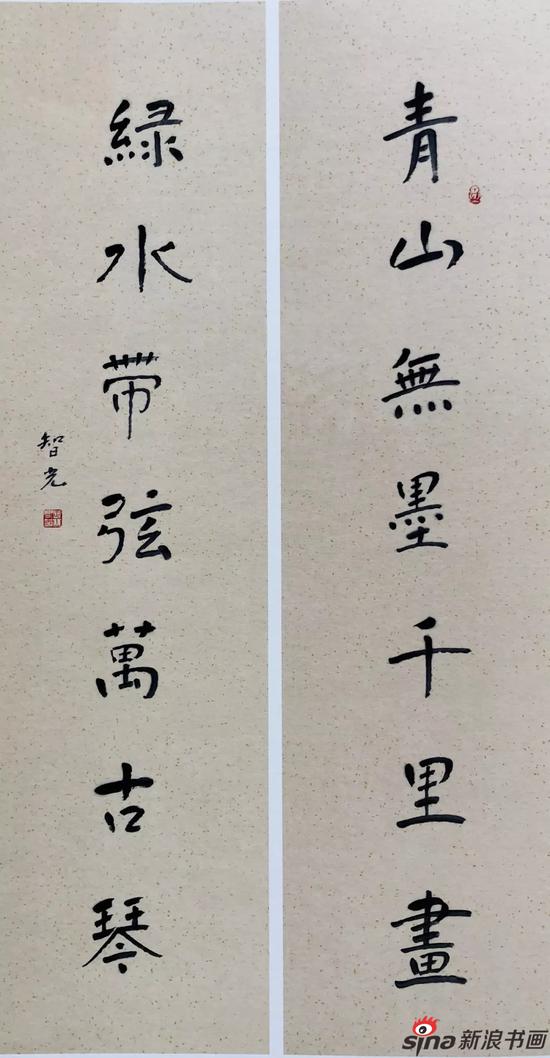 青山無墨千里畫
綠水带弦萬古琴
智光
sina新浪书画